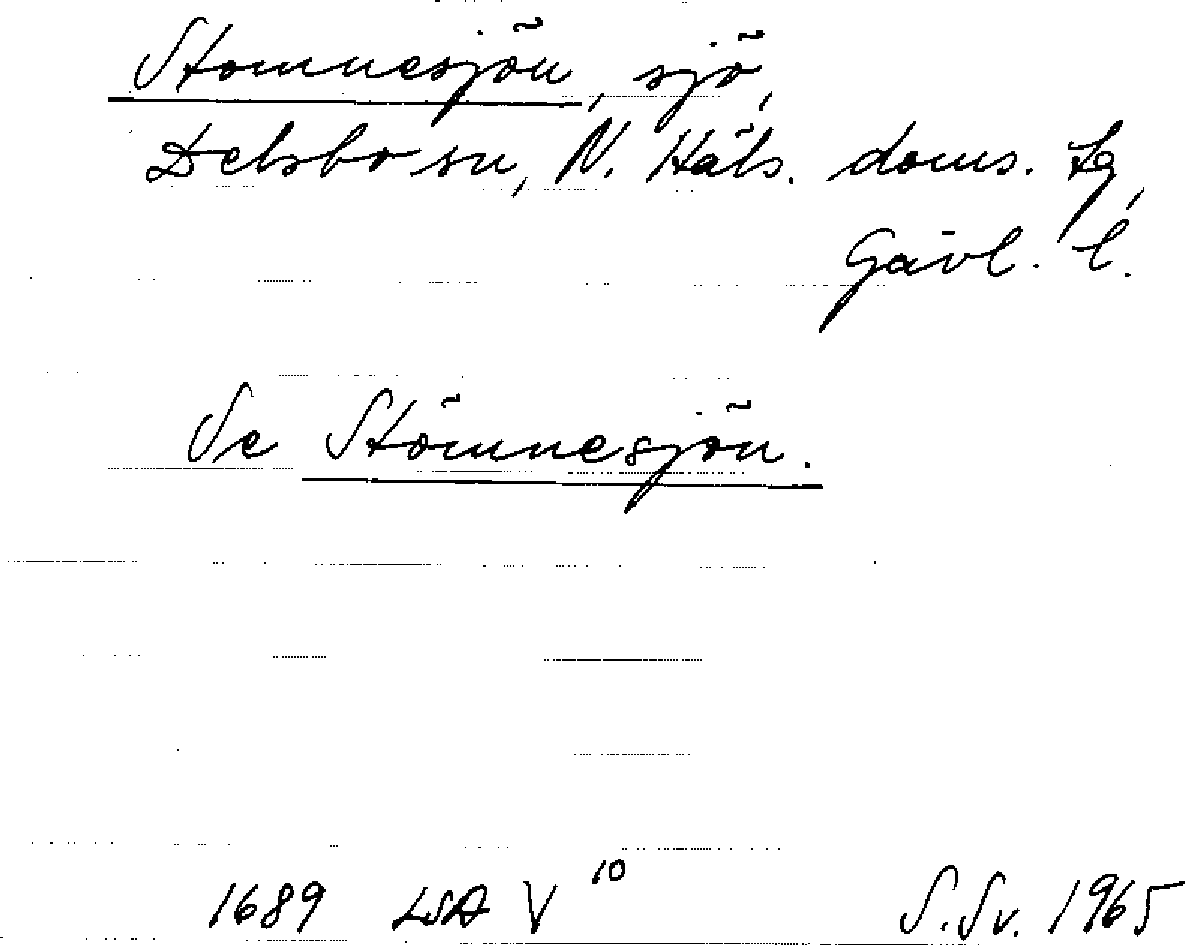 Stomnesjön, sjö,
Delsbo sn, N. Häls. doms. tg,
Gävl. l.
Se Stömnesjön.
1689 LSA V 10
S. Sv. 1965